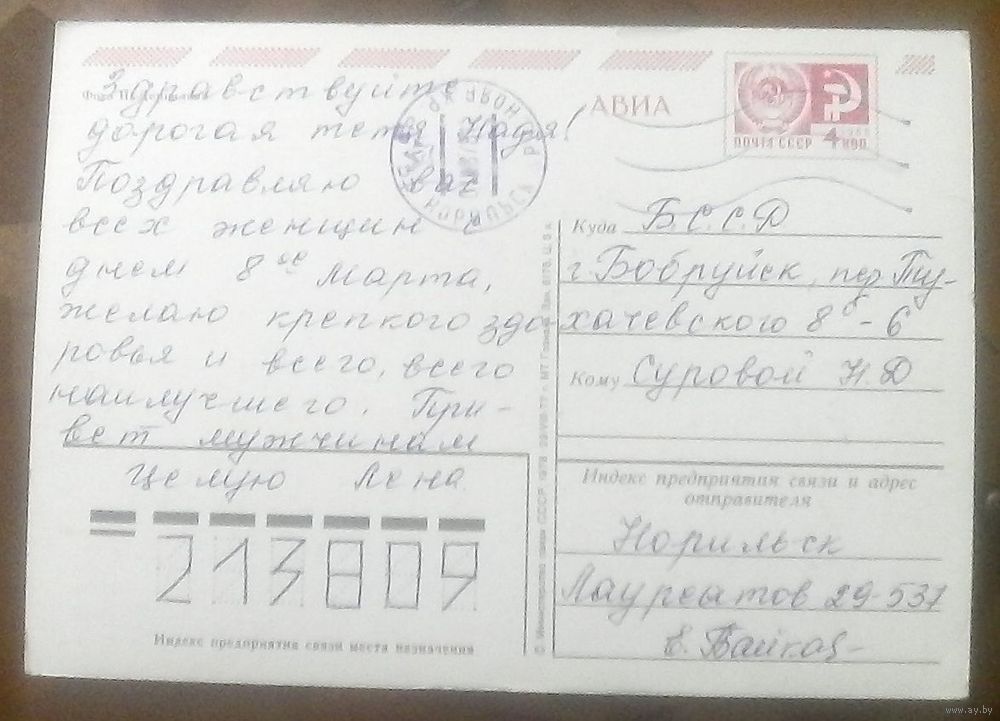 Здравствуйте
дорогая тетя Надя!
Поздравляю вас
всех женщин с
днем 8ое марта,
желаю крепкого здо-
ровья и всего, всего
наилучшего. При-
вет мужчинам
Целую Лена.
213809
Индекс предприятия связи места назначения
АВИА
ПОЧТА СССР 4 КОП
НОРИЛЬСК
Куда Б.С.С.Р
г. Бобруйск, пер Ту-
хачевского 8б-6
Кому Суровой Н.Д
Индекс предприятия связи и адрес
отправителя
Норильск
Лауреатов 29-537
© Министерство связи СССР. 1978
www.ay.by